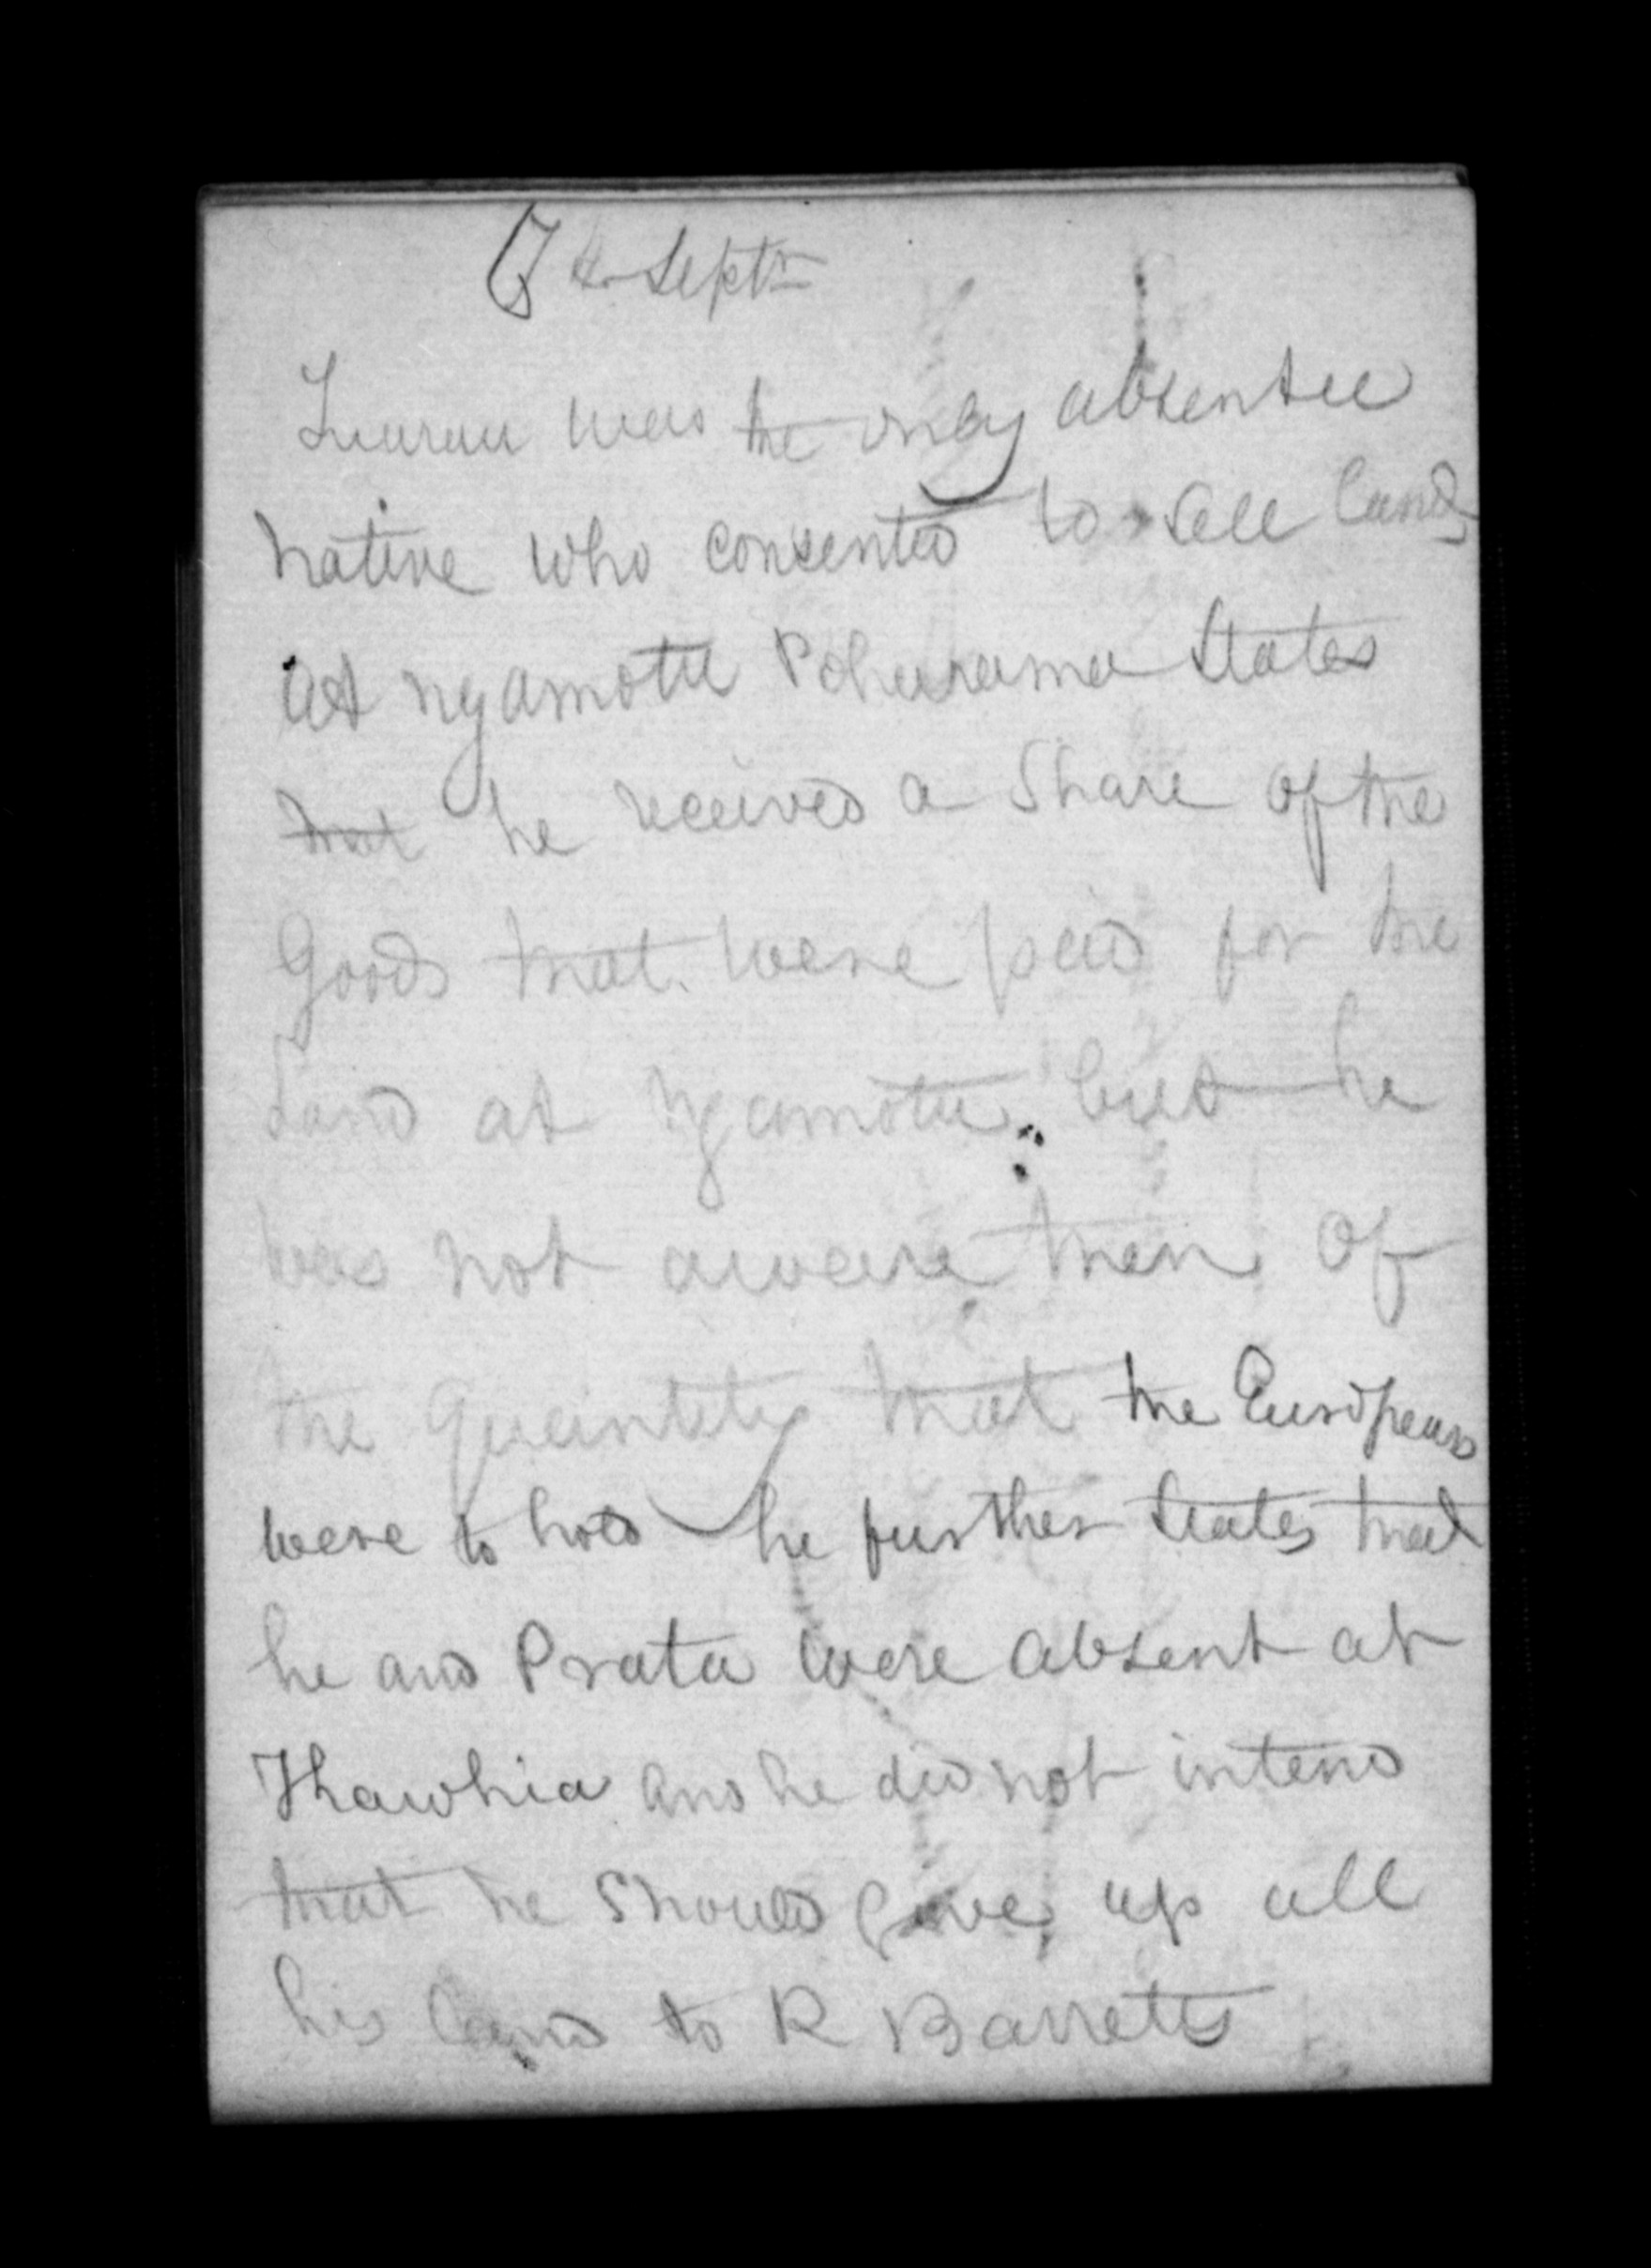 7th Septr
Tuarau was the only absentee
native who consented to sell land
At ngamotu Poharama States
that he received a Share of the
Goods that were paid for the
Land at Ngamotu but he
was not aware then of
the quantity that the Europeans
were to hold he further States that
he and Porata were absent at
Kawhia and he did not intend
that he should give up all
his land to R Barrett